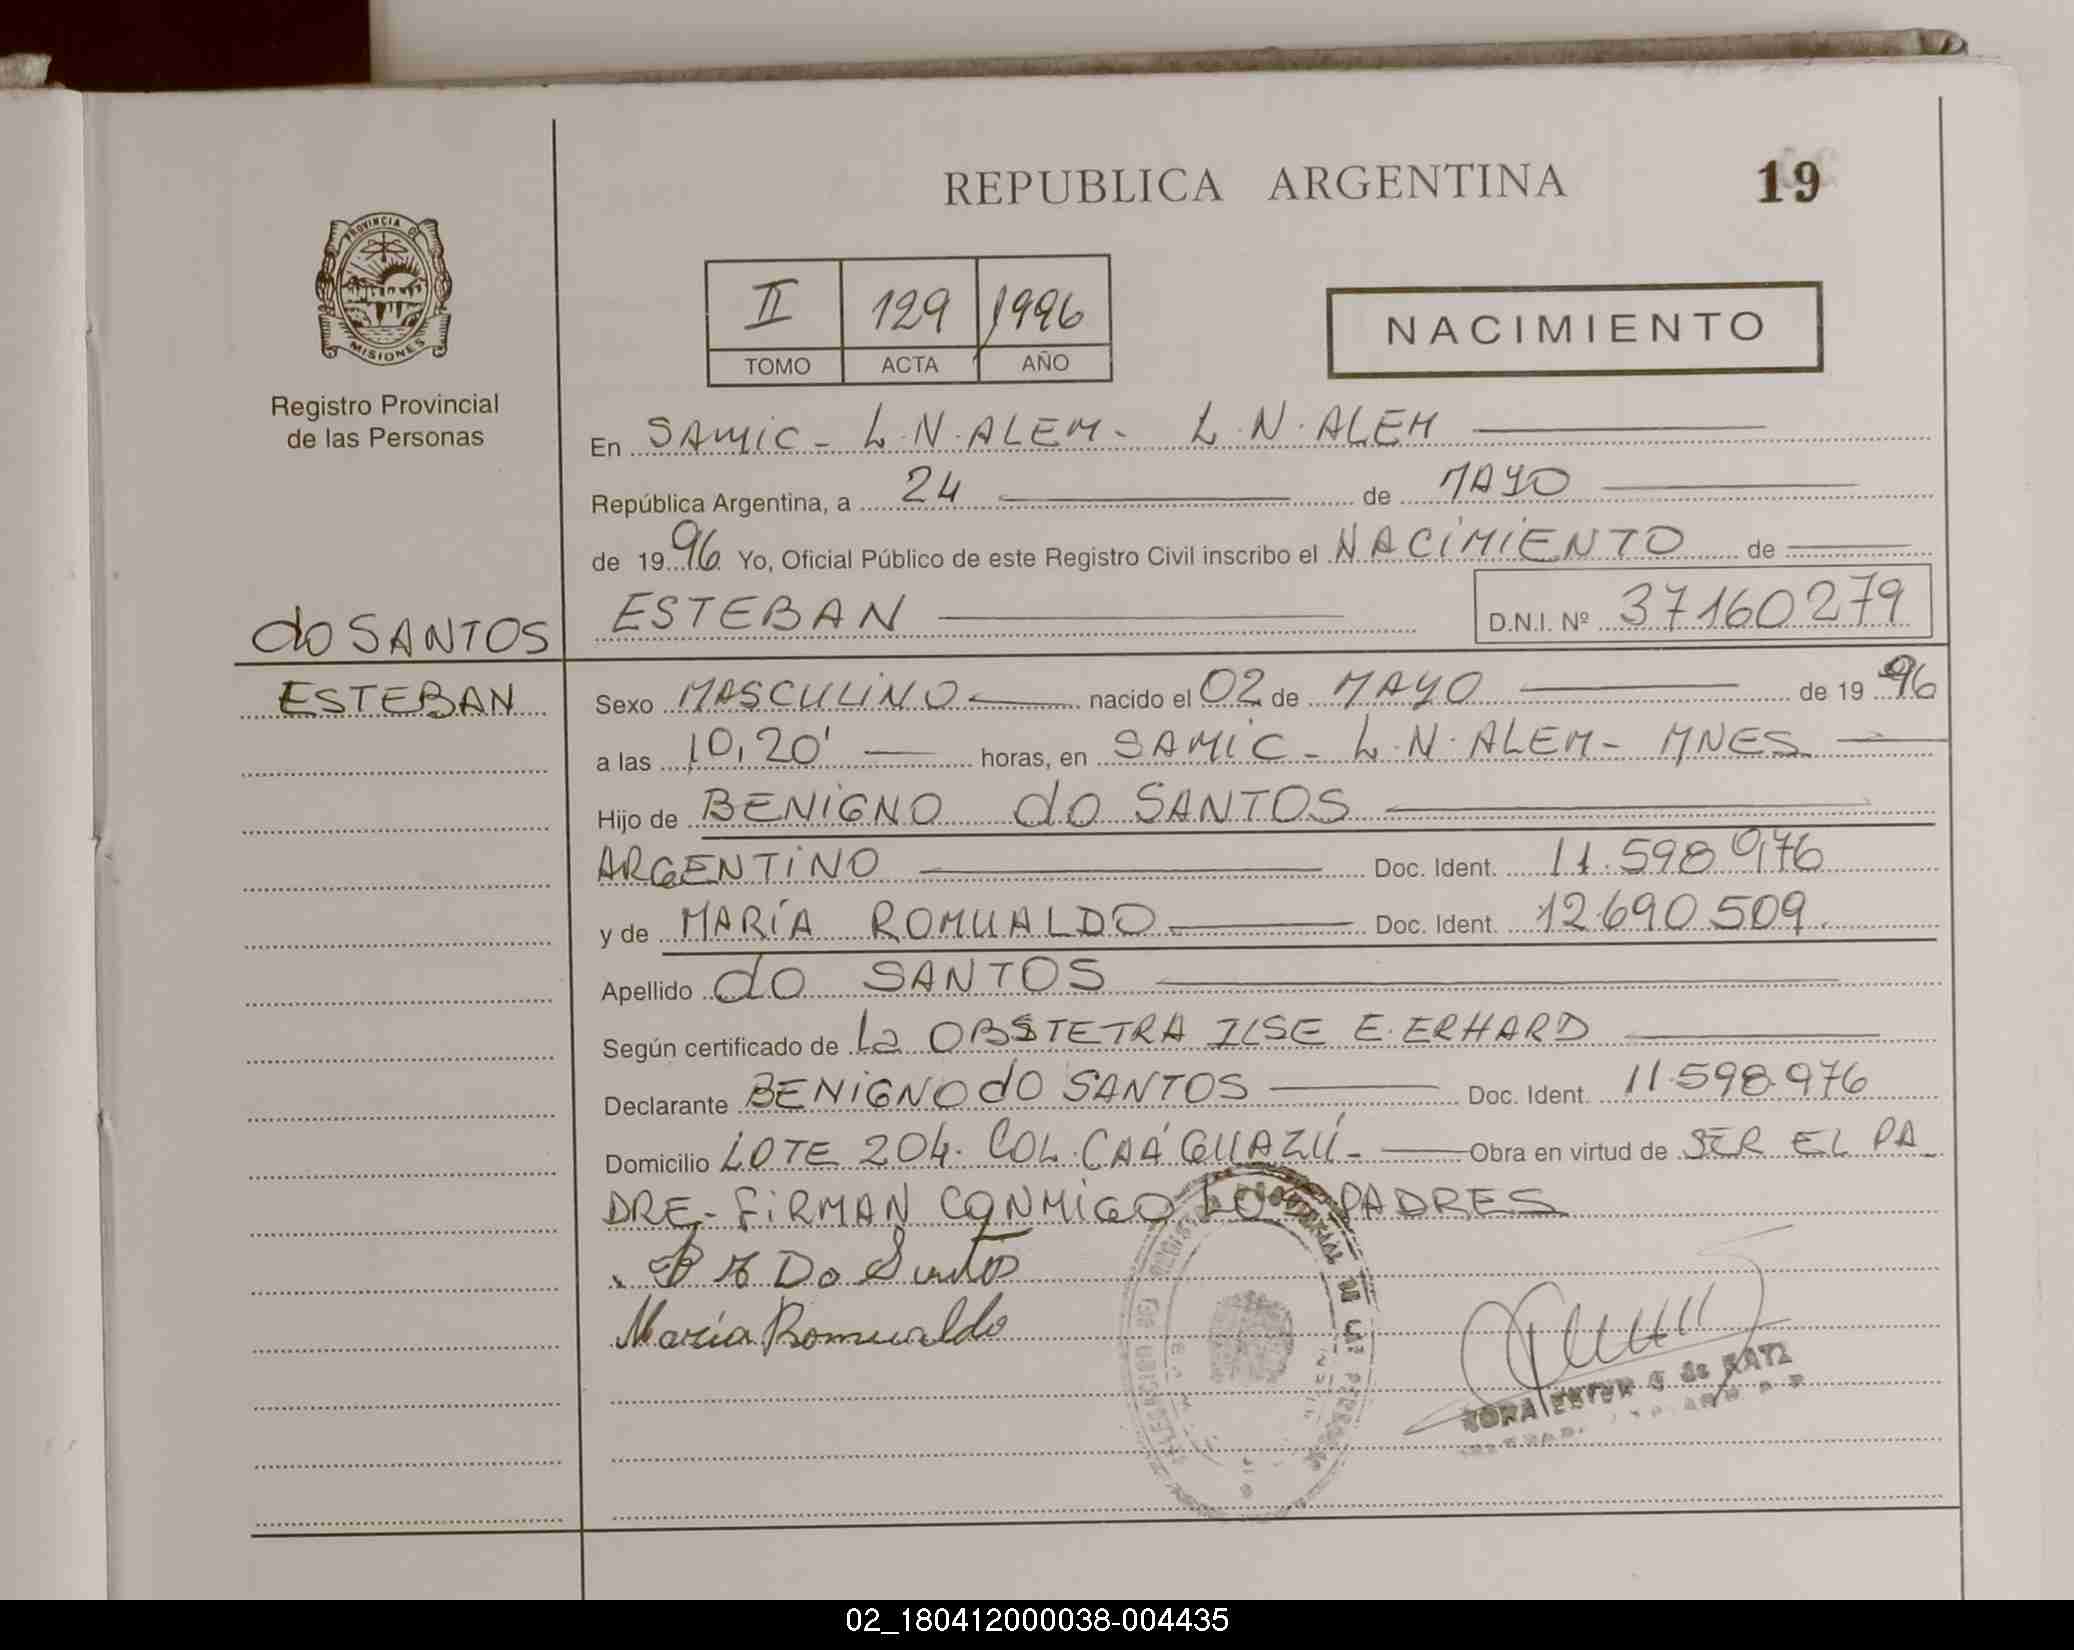 REPUBLICA ARGENTINA
19
PROVINCIA DE
MISIONES
Registro Provincial
de las Personas
II 129 1996
TOMO ACTA AÑO
NACIMIENTO
En SAMIC - L.N. ALEM - L.N. ALEM
República Argentina, a 24 de MAYO
de 1996 Yo, Oficial Público de este Registro Civil inscribo el NACIMIENTO de
ESTEBAN D.N.I. Nº 37160279
do SANTOS
ESTEBAN
Sexo MASCULINO nacido el 02 de MAYO de 19 96
a las 10,20' horas, en SAMIC - L.N. ALEM - MNES
Hijo de BENIGNO do SANTOS
ARGENTINO Doc. Ident. 11.598.976
y de MARÍA ROMUALDO Doc. Ident. 12.690.509.
Apellido do SANTOS
Según certificado de la OBSTETRA ILSE E. ERHARD
Declarante BENIGNO do SANTOS Doc. Ident. 11.598.976
Domicilio LOTE 204. COL. CAÁ GUAZÚ - Obra en virtud de SER EL PA_
DRE - FIRMAN CONMIGO LOS PADRES
Do Santos
María Romualdo
de KATZ
02_180412000038-004435